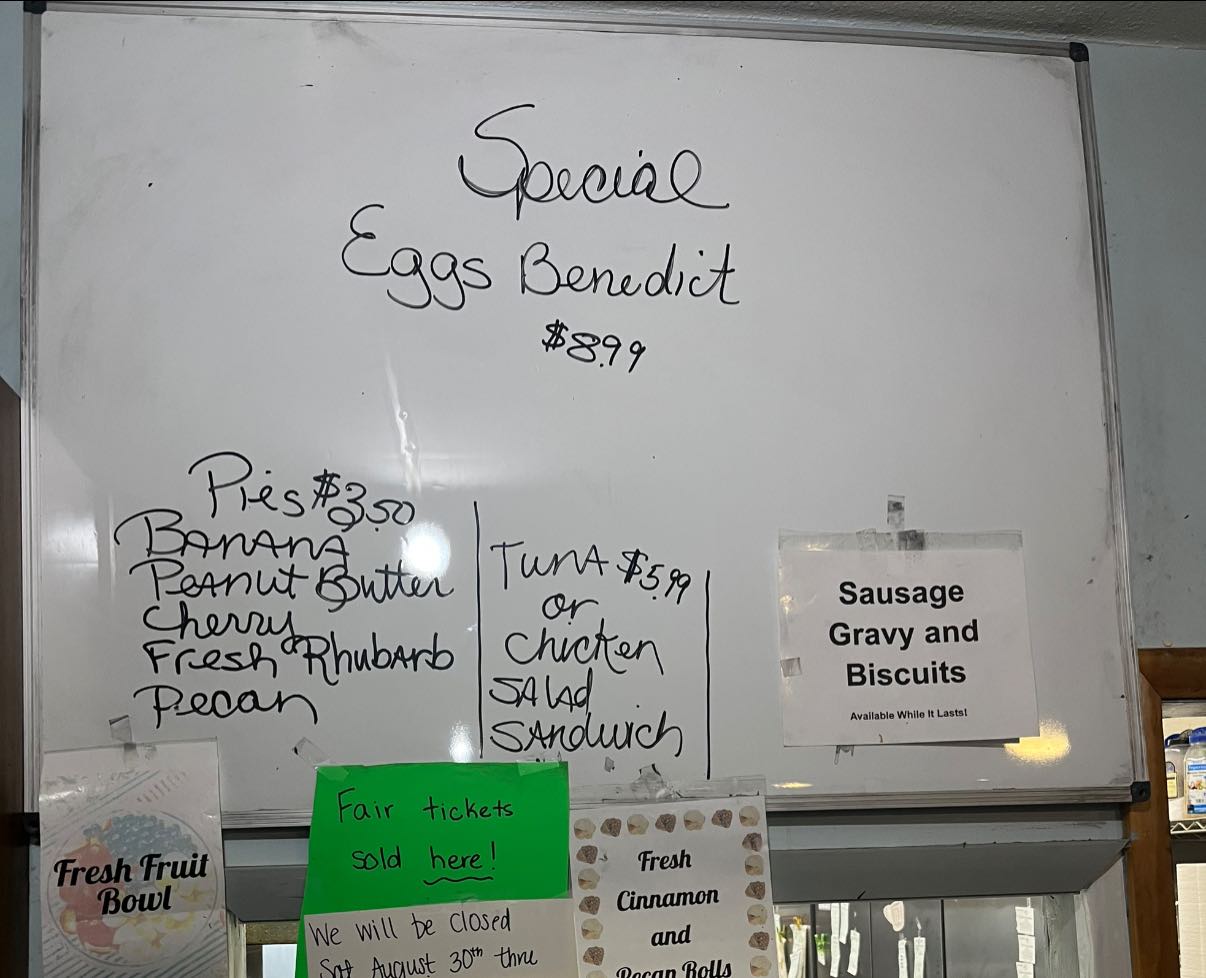 Special
Eggs Benedict
$8.99
Pies $3.50
Banana
Peanut Butter
Cherry
Fresh Rhubarb
Pecan
Tuna $5.99
or
Chicken
Salad
Sandwich
Sausage
Gravy and
Biscuits
Available While It Lasts!
Fresh Fruit
Bowl
Fair tickets
sold here!
We will be closed
Sat August 30th thru
Fresh
Cinnamon
and
Pecan Rolls